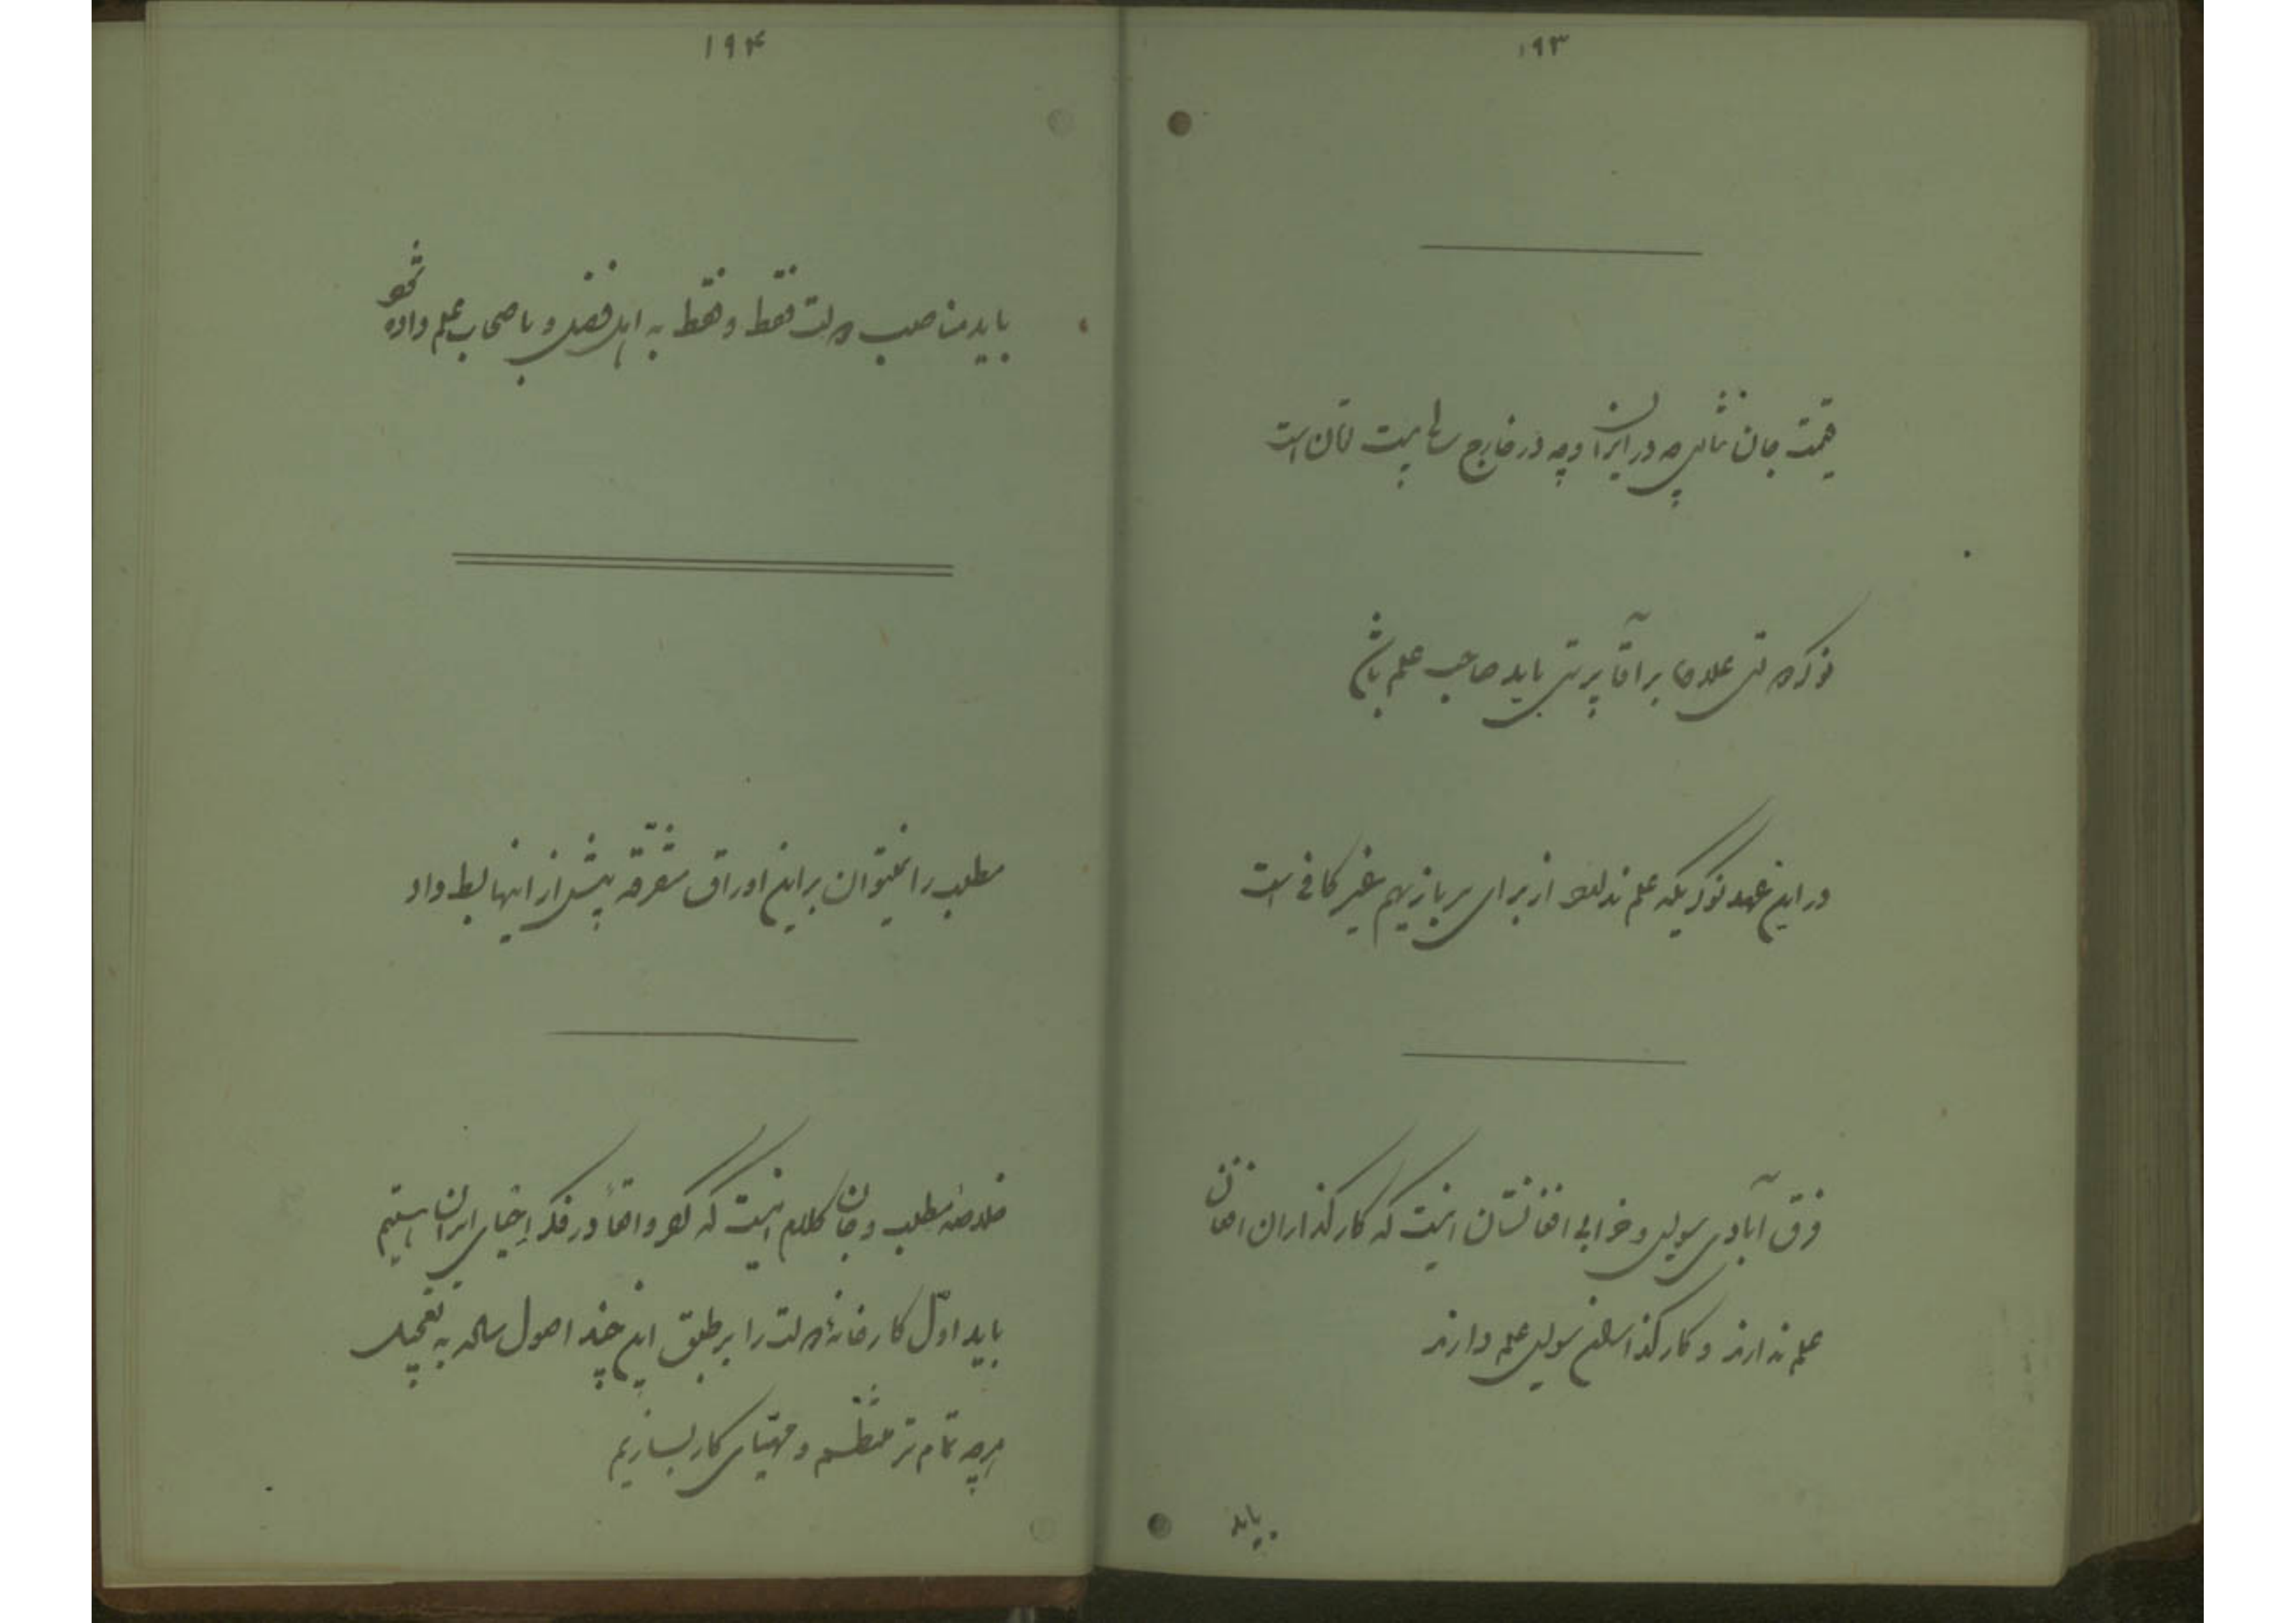 ۱۹۳
قیمت جان نثاری چه در ایران و چه در خارج سالی بیست تومان است
نوکر دولتی علاوه بر آقا پرستی باید صاحب علم باشد
در این عهد نوکریکه علم ندارد از برای سربازی هم غیر کافی است
فرق آبادی سویس و خرابی افغانستان اینست که کارگذاران افغان
علم ندارند و کارگذاران سویس علم دارند
باید
۱۹۴
باید مناصب دولت فقط و فقط به اهل فضل و باصحاب علم داده شود
مطلب را نمیتوان بر این اوراق متفرقه بیش از اینها بسط داد
خلاصهٔ مطلب و جان کلام اینست که اگر واقعاً در فکر احیای ایران هستیم
باید اوّل کارخانهٔ دولت را بر طبق این چند اصول به تعجیل
هرچه تمام تر منظم و مهیّای کار بسازیم